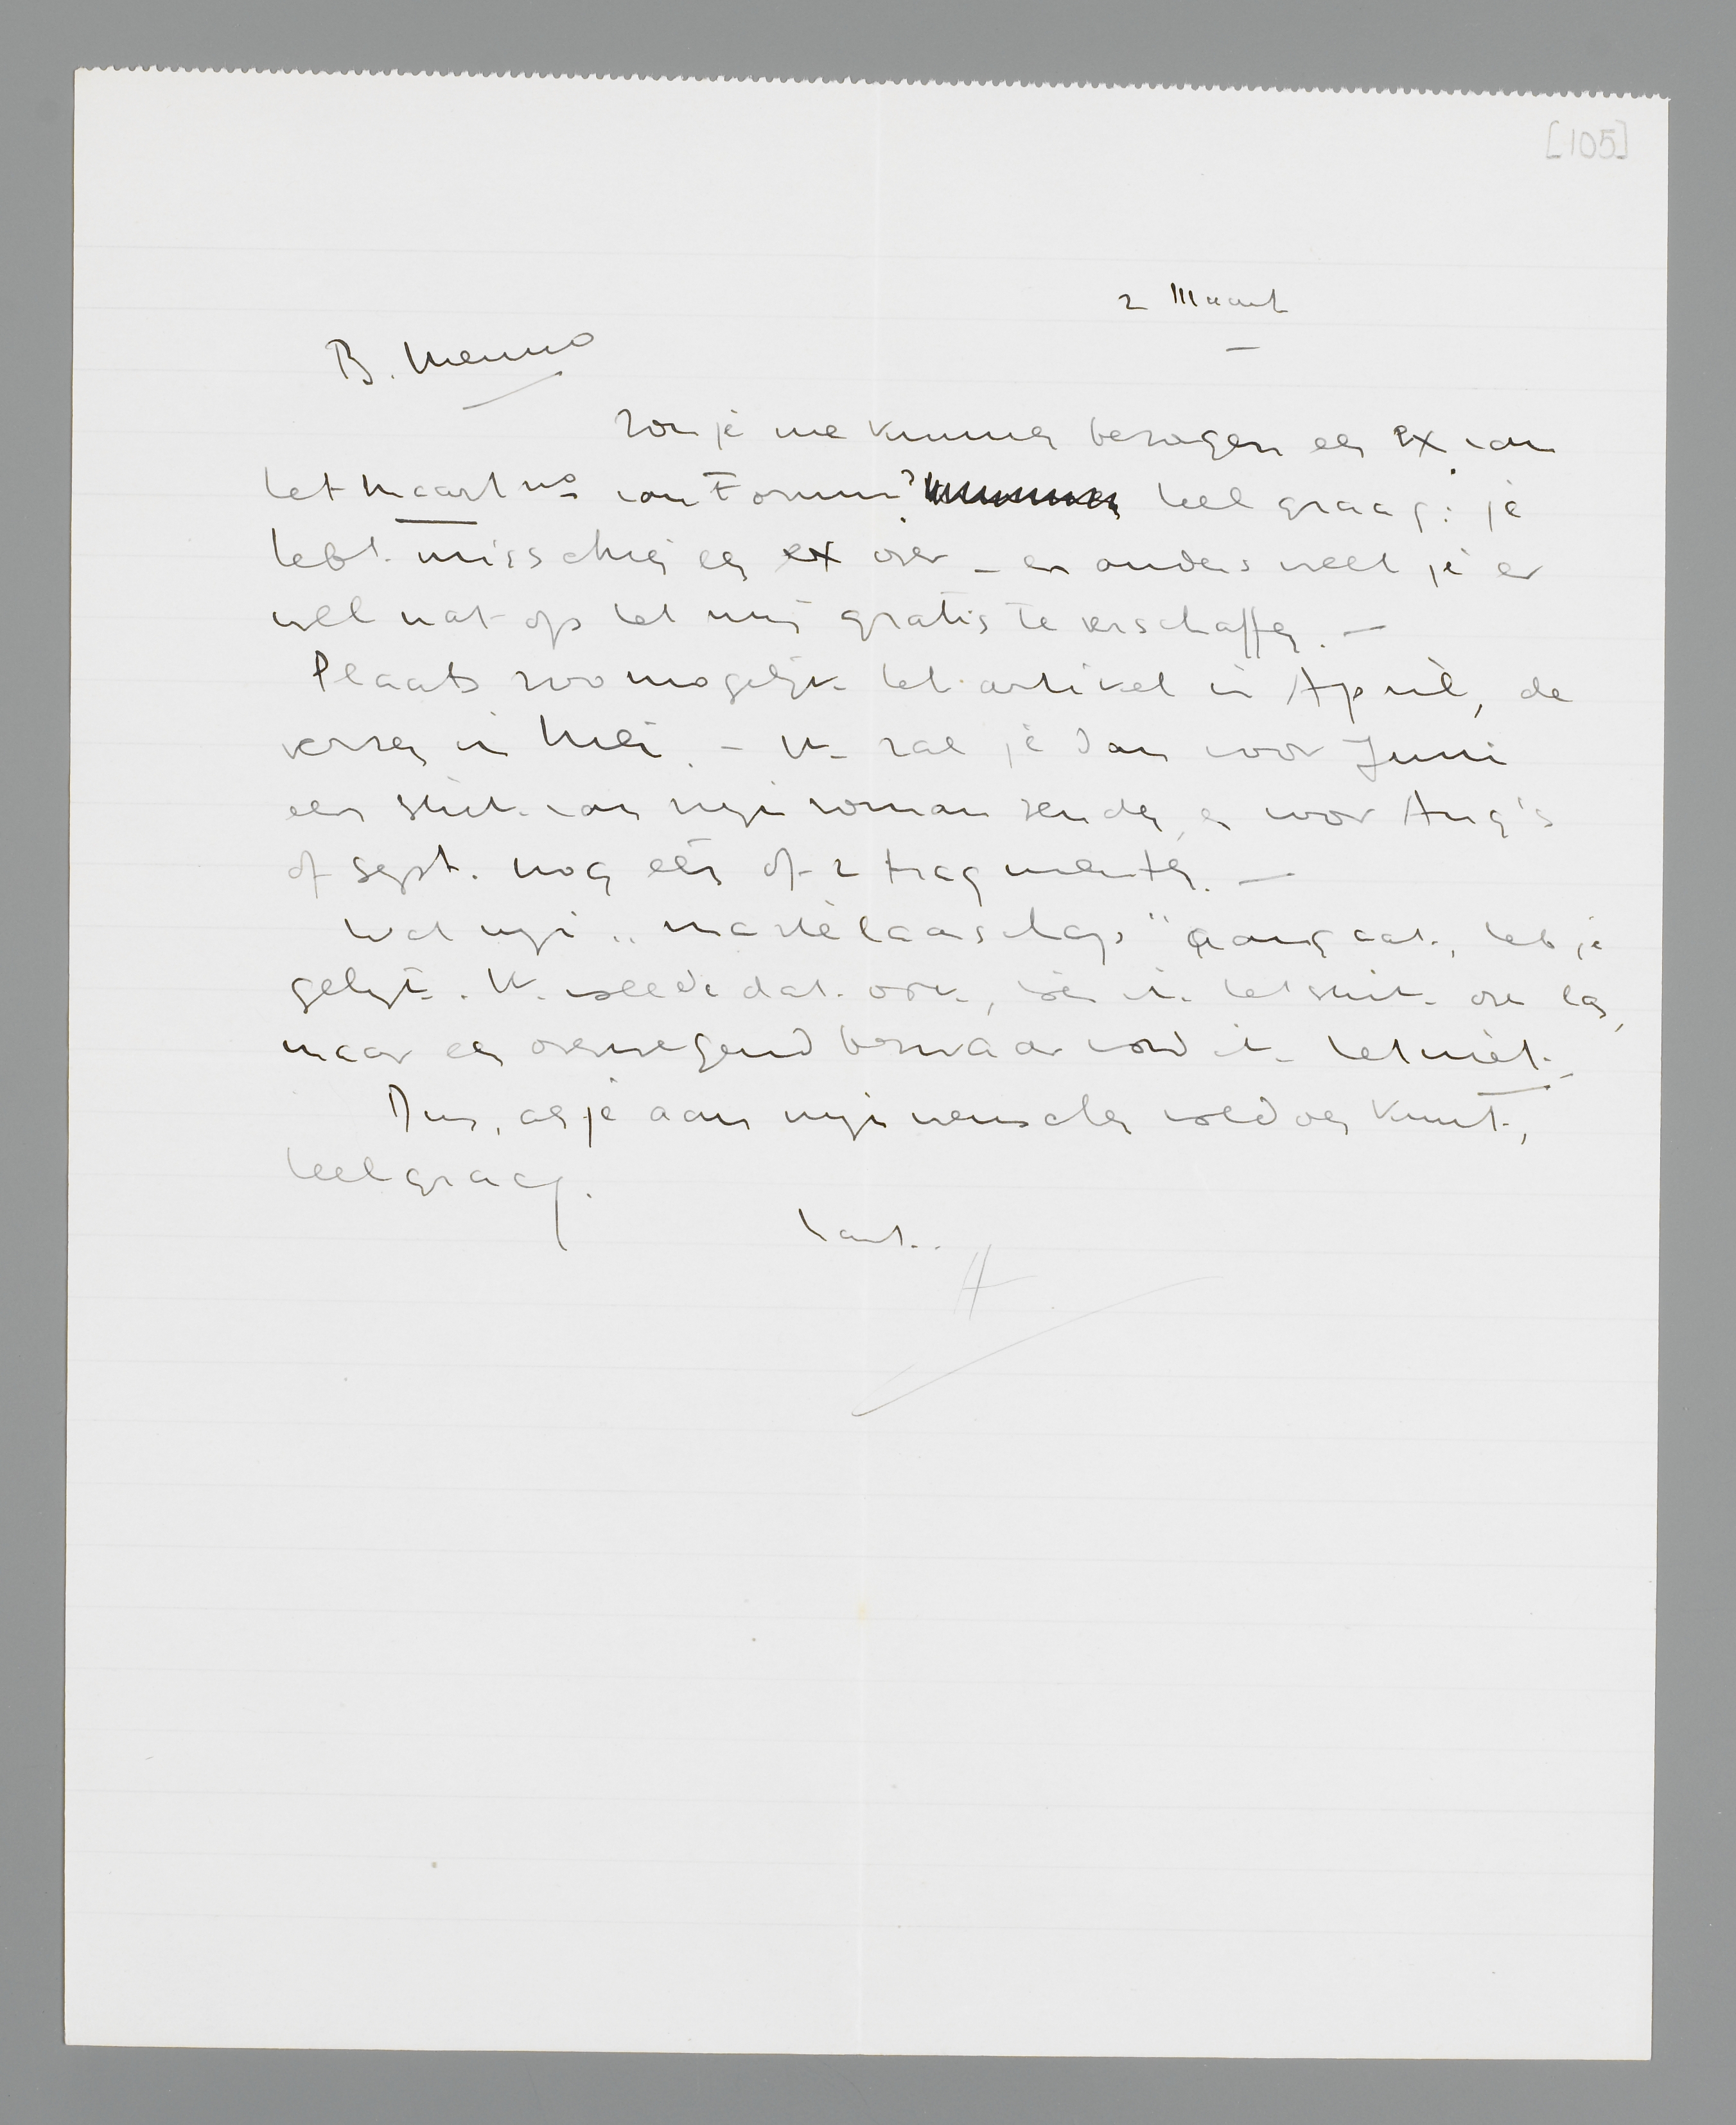 [105]
2 Maart
B. Menno
Zou je me kunnen bezorgen een ex van
het Maart no van Forum? heel graag: je
hebt misschien een ex over – en anders weet je er
wel wat op het mij gratis te verschaffen. –
Plaats zoo mogelijk het artikel in April, de
verzen in Mei. – Ik zal je dan voor Juni
een stuk van mijn roman zenden, en voor Aug's
of Sept. nog één of 2 fragmenten. –
Wat mijn „martelaarschap" aangaat, heb je
gelijk. Ik voelde dat ook, toen ik het stuk over las,
maar een overwegend bezwaar vond ik het niet.
Dus, als je aan mijn wenschen voldoen kunt,
heel graag.